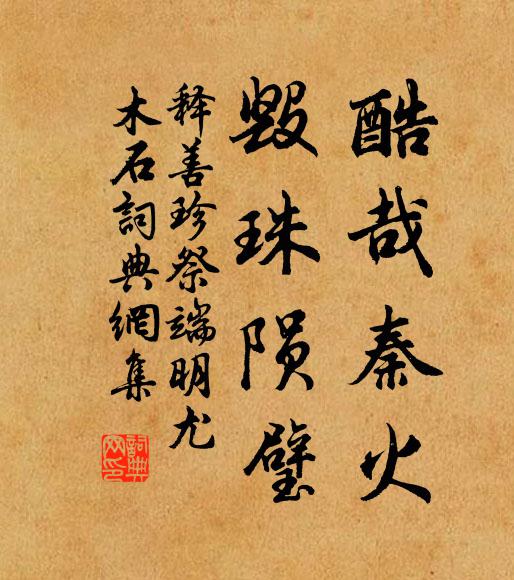 酷哉秦火
毁珠陨璧
释善珍祭端明尤
木石詞典網集
詞典
网印